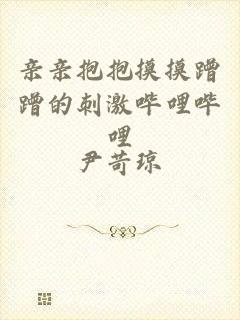 亲亲抱抱摸摸蹭
蹭的刺激哔哩哔
哩
尹苛琼